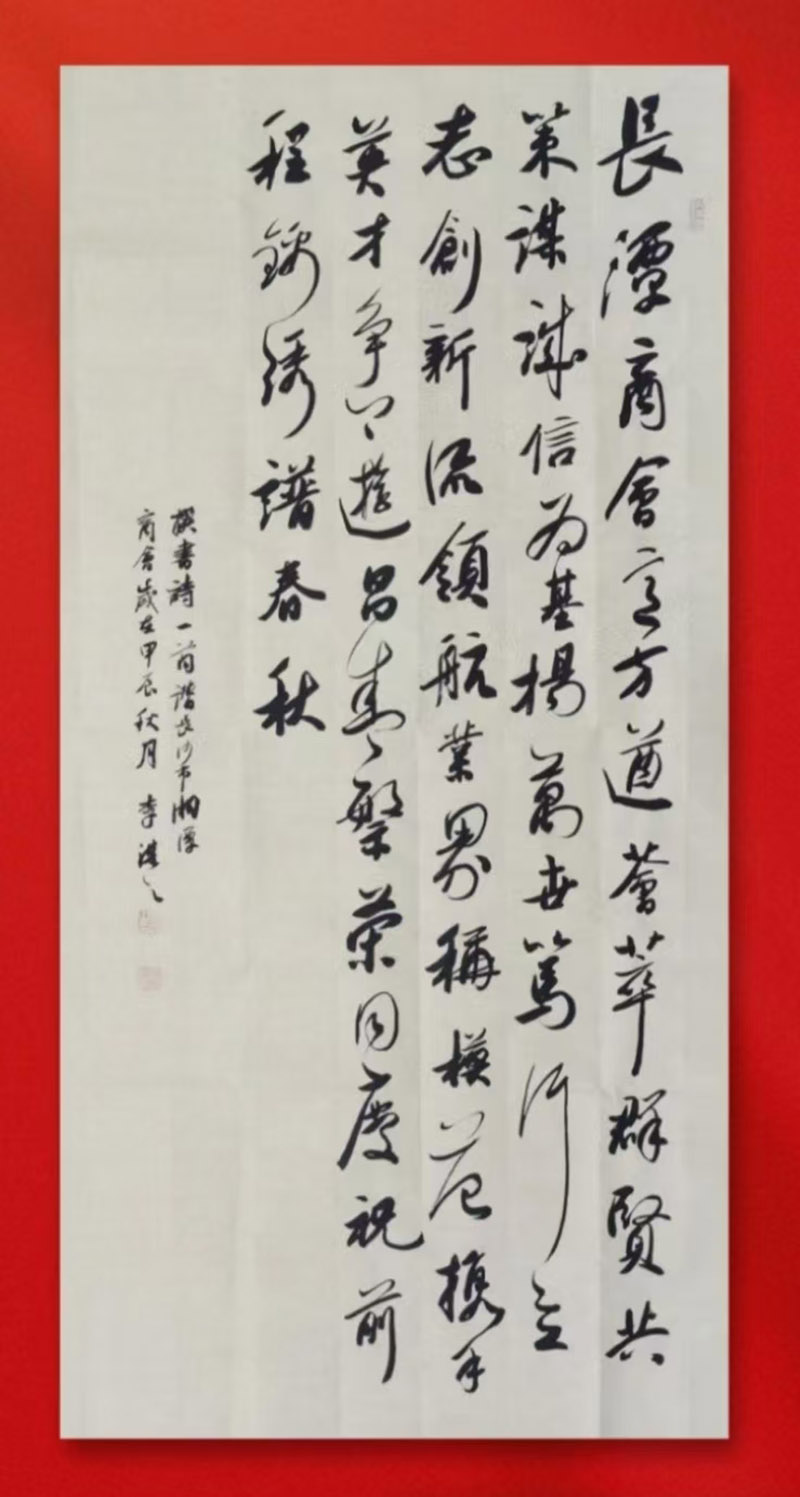 長潭商會意方遒薈萃群賢共
策謀誠信为基揚萬世篤行立
志創新流領航業界稱模范携手
英才争上遊昌盛繁荣同慶祝前
程錦绣譜春秋
撰書詩一首諧長沙市湘潭
商會歲在甲辰秋月 李